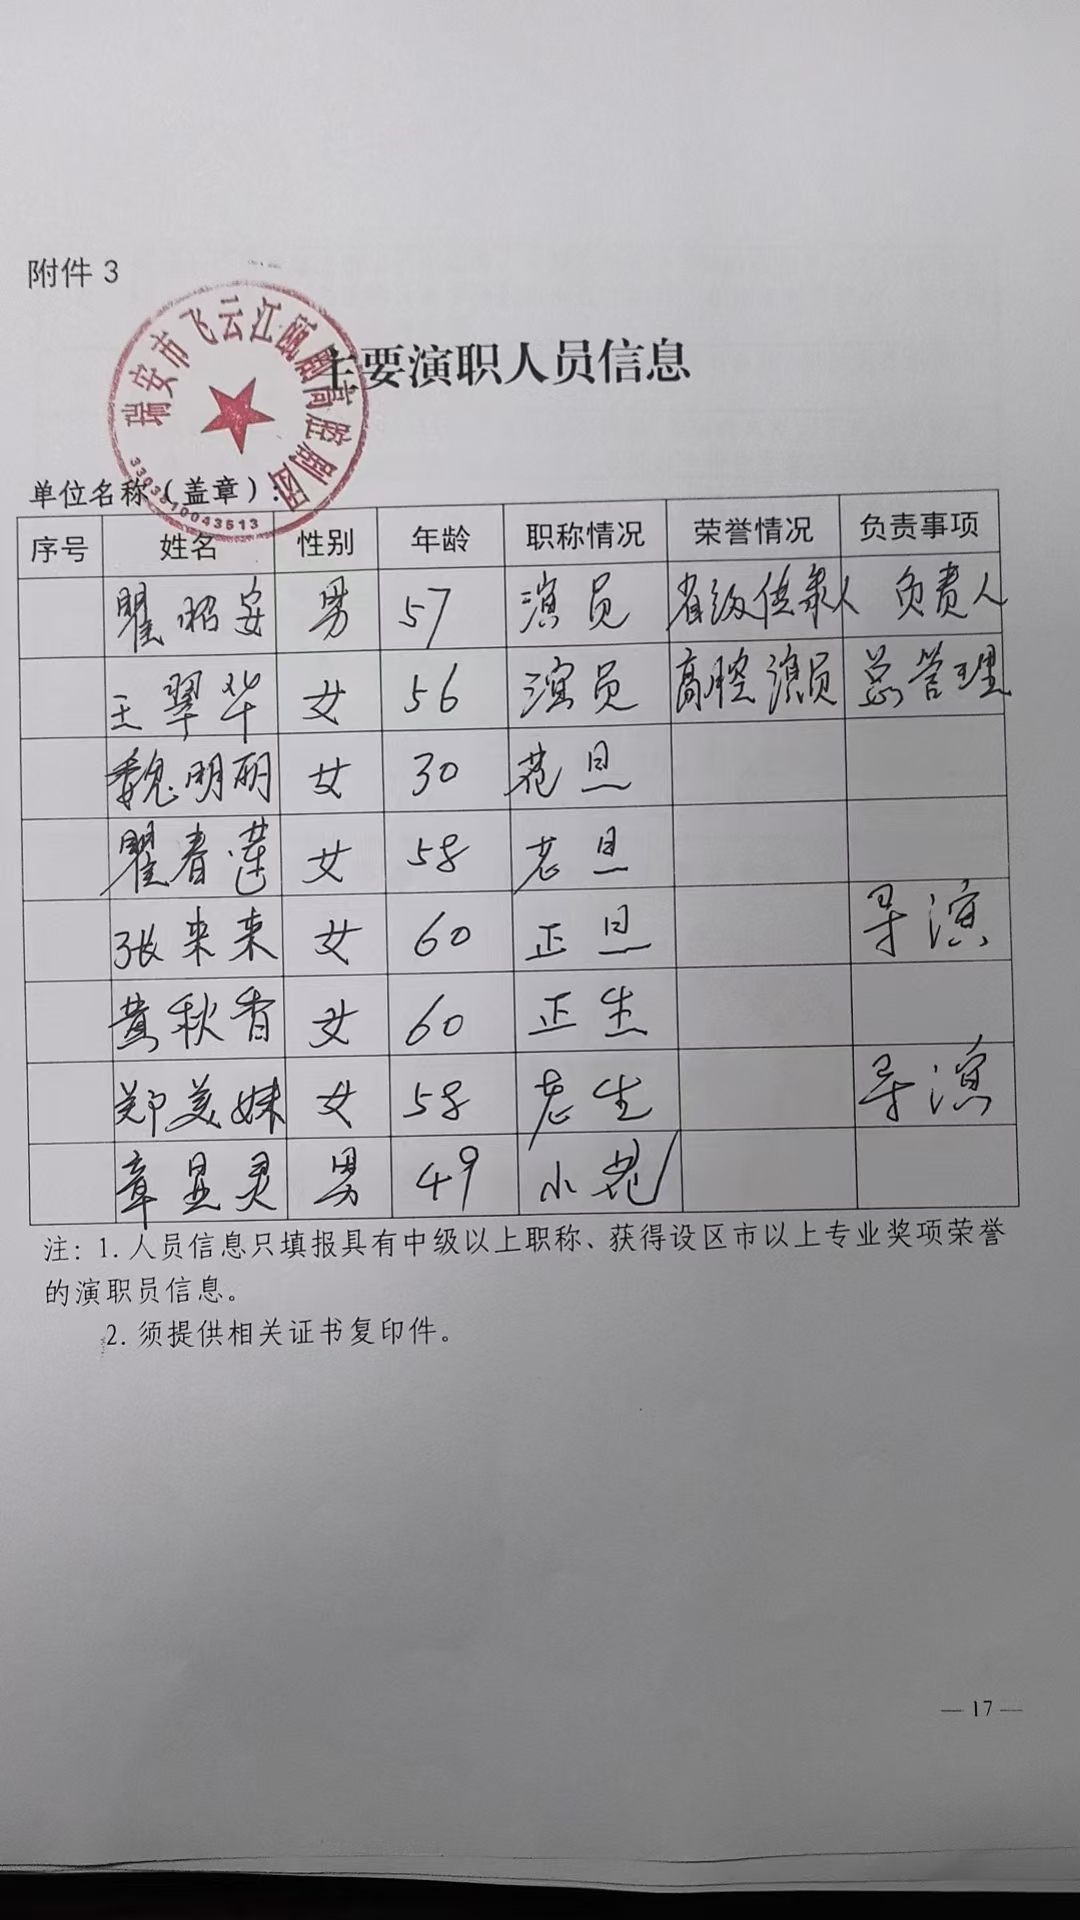 附件 3
瑞安市飞云江瓯剧高腔剧团
3303810043513
主要演职人员信息
单位名称（盖章）：
序号 姓名 性别 年龄 职称情况 荣誉情况 负责事项
瞿昭安 男 57 演员 省级传承人 负责人
王翠华 女 56 演员 高腔演员 总管理
魏明丽 女 30 花旦
瞿春莲 女 58 老旦
张来来 女 60 正旦 导演
黄秋香 女 60 正生
郑美妹 女 58 老生 导演
章显灵 男 49 小花
注：1. 人员信息只填报具有中级以上职称、获得设区市以上专业奖项荣誉
的演职员信息。
2. 须提供相关证书复印件。
— 17 —